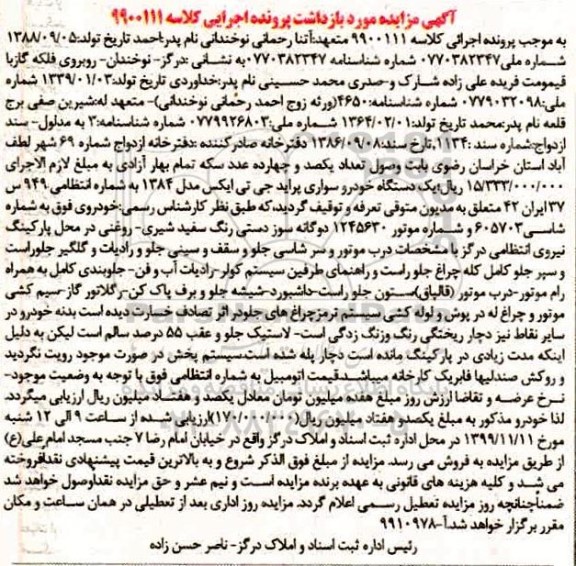 آگهی مزایده مورد بازداشت پرونده اجرایی کلاسه ۹۹۰۰۱۱۱
به موجب پرونده اجرائی کلاسه ۹۹۰۰۱۱۱ متعهد:آتنا رحمانی نوخندانی نام پدر:احمد تاریخ تولد:۱۳۸۸/۰۹/۰۵
شماره ملی:۰۷۷۰۳۸۲۳۴۷ شماره شناسنامه ۰۷۷۰۳۸۲۳۴۷به نشانی :درگز- نوخندان- روبروی فلکه گازیا
قیمومت فریده علی زاده شارک و-صدری محمد حسینی نام پدر:خداوردی تاریخ تولد:۱۳۳۹/۰۱/۰۳ شماره
ملی:۰۷۷۹۰۳۲۰۹۸ شماره شناسنامه:۴۶۵۰(ورثه زوج احمد رحمانی نوخندانی)- متعهد له:شیرین صفی برج
قلعه نام پدر:محمد تاریخ تولد:۱۳۶۴/۰۲/۰۱ شماره ملی:۰۷۷۹۹۲۶۸۰۳ شماره شناسنامه:۳ به مدلول- سند
ازدواج:شماره سند :۱۱۳۴،تاریخ سند:۱۳۸۶/۰۹/۰۸ دفترخانه صادرکننده :دفترخانه ازدواج شماره ۶۹ شهر لطف
آباد استان خراسان رضوی بابت وصول تعداد یکصد و چهارده عدد سکه تمام بهار آزادی به مبلغ لازم الاجرای
۱۵/۳۳۳/۰۰۰/۰۰۰ ریال:یک دستگاه خودرو سواری پراید جی تی ایکس مدل ۱۳۸۴ به شماره انتظامی ۹۴۹ س
۳۷ ایران ۴۲ متعلق به مدیون متوفی تعرفه و توقیف گردید،که طبق نظر کارشناس رسمی:خودروی فوق به شماره
شاسی:۶۰۵۷۰۳ و شماره موتور ۱۲۴۵۶۳۰ دوگانه سوز دستی رنگ سفید شیری- روغنی در محل پارکینگ
نیروی انتظامی درگز با مشخصات درب موتور و سر شاسی جلو و سقف و سینی جلو و رادیات و گلگیر جلوراست
و سپر جلو کامل کله چراغ جلو راست و راهنمای طرفین سیستم کولر-رادیات آب و فن- جلوبندی کامل به همراه
رام موتور-درب موتور (قالپاق)ستون جلو راست-داشبورد-شیشه جلو و برف پاک کن-رگلاتور گاز-سیم کشی
موتور و چراغ له در پوش و لوله کشی سیستم ترمزچراغ های جلودر اثر تصادف خسارت دیده است بدنه خودرو در
سایر نقاط نیز دچار ریختگی رنگ وزنگ زدگی است- لاستیک جلو و عقب ۵۵ درصد سالم است لیکن به دلیل
اینکه مدت زیادی در پارکینگ مانده است دچار پله شده است،سیستم پخش در صورت موجود رویت نگردید
و روکش صندلیها فابریک کارخانه میباشد.قیمت اتومبیل به شماره انتظامی فوق با توجه به وضعیت موجود-
نرخ عرضه و تقاضا ارزش روز مبلغ هفده میلیون تومان معادل یکصد و هفتاد میلیون ریال ارزیابی میگردد.
لذا خودرو مذکور به مبلغ یکصدو هفتاد میلیون ریال(۱۷۰/۰۰۰/۰۰۰)ارزیابی شده از ساعت ۹ الی ۱۲ شنبه
مورخ ۱۳۹۹/۱۱/۱۱ در محل اداره ثبت اسناد و املاک درگز واقع در خیابان امام رضا ۷ جنب مسجد امام علی(ع)
از طریق مزایده به فروش می رسد. مزایده از مبلغ فوق الذکر شروع و به بالاترین قیمت پیشنهادی نقدافروخته
می شد و کلیه هزینه های قانونی به عهده برنده مزایده است و نیم عشر و حق مزایده نقداوصول خواهد شد
ضمناًچنانچه روز مزایده تعطیل رسمی اعلام گردد. مزایده روز اداری بعد از تعطیلی در همان ساعت و مکان
مقرر برگزار خواهد شد.آ-۹۹۱۰۹۷۸
رئیس اداره ثبت اسناد و املاک درگز- ناصر حسن زاده